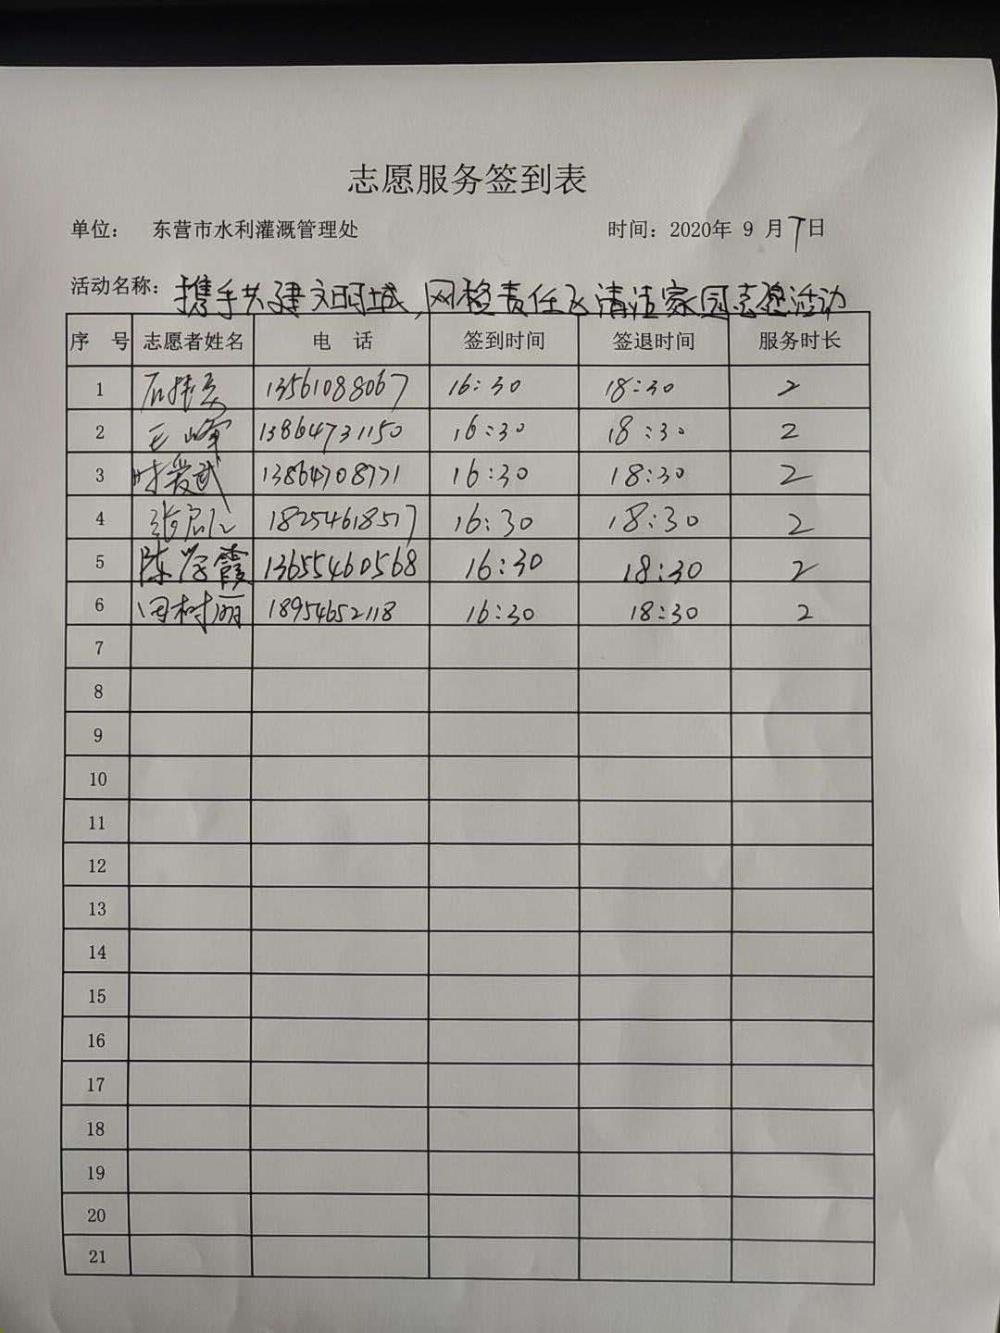 志愿服务签到表
单位： 东营市水利灌溉管理处 时间：2020年 9 月 7日
活动名称：携手共建文明城,网格责任区清洁家园志愿活动
序 号 志愿者姓名 电 话 签到时间 签退时间 服务时长
1 13561088067 16:30 18:30 2
2 王峰 13864731150 16:30 18:30 2
3 时爱武 13864708771 16:30 18:30 2
4 18254618517 16:30 18:30 2
5 陈学霞 13655460568 16:30 18:30 2
6 田树丽 18954652118 16:30 18:30 2
7
8
9
10
11
12
13
14
15
16
17
18
19
20
21